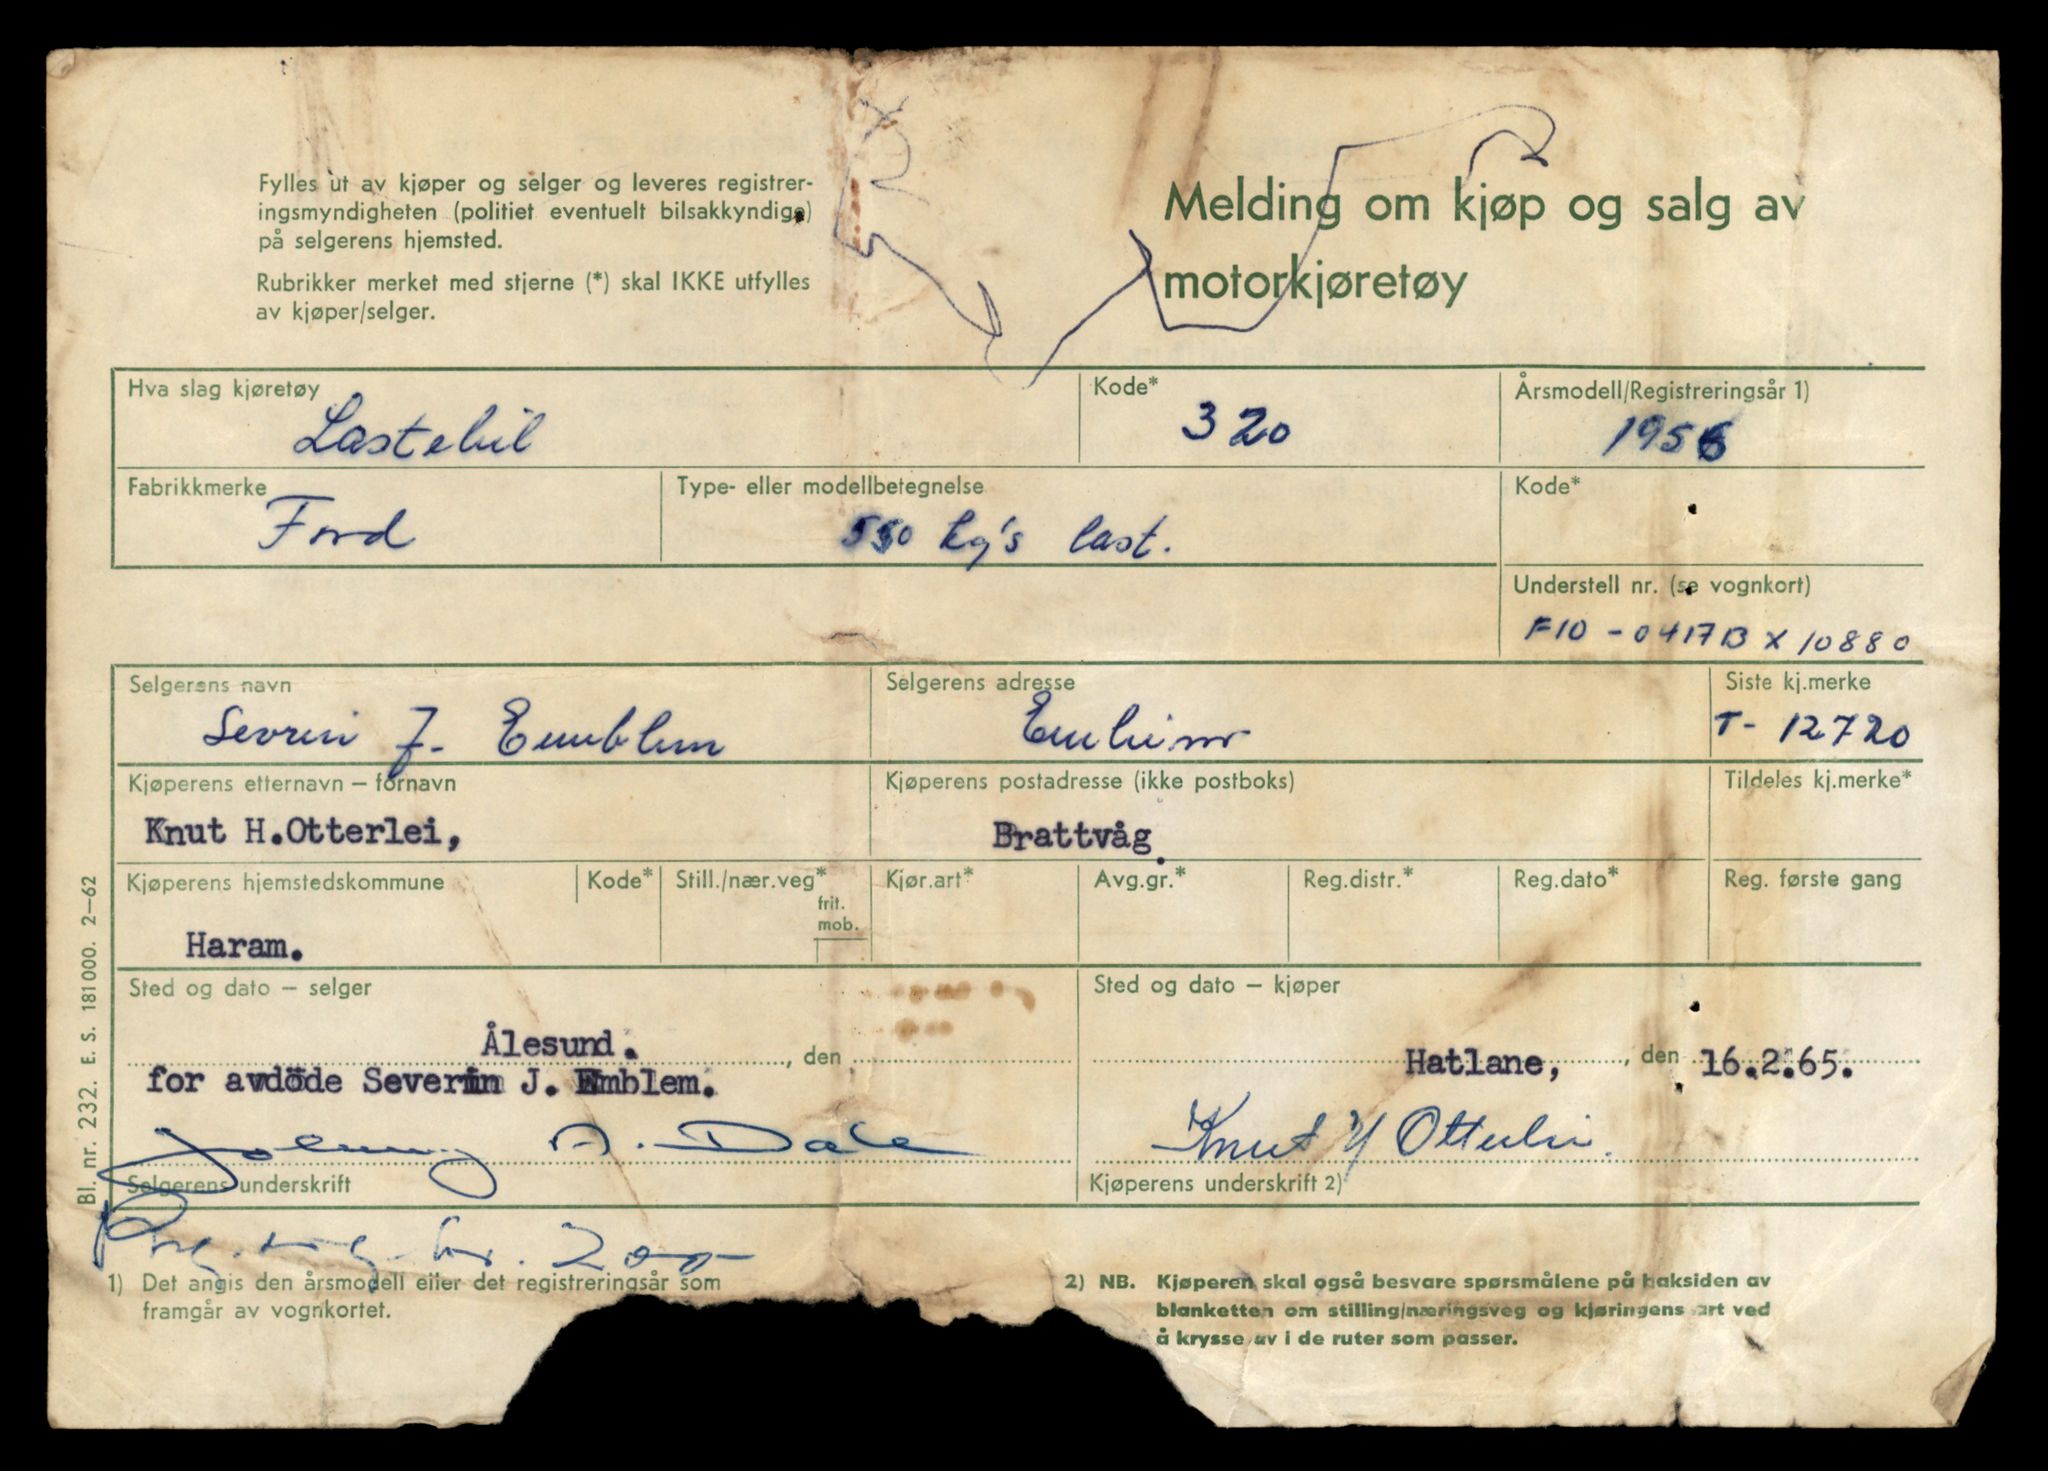 Fylles ut av kjøper og selger og leveres registrer-
ingsmyndigheten (politiet eventuelt bilsakkyndige)
på selgerens hjemsted.
Rubrikker merket med stjerne (*) skal IKKE utfylles
av kjøper/selger.
Melding om kjøp og salg av
motorkjøretøy
Hva slag kjøretøy
Lastebil
Kode*
320
Årsmodell/Registreringsår 1)
1956
Fabrikkmerke
Ford
Type- eller modellbetegnelse
550 kg's last.
Kode*
Understell nr. (se vognkort)
F10 - 0417B X 10880
Selgerens navn
Sevrin J. Emblem
Selgerens adresse
Siste kj.merke
T- 12720
Kjøperens etternavn – fornavn
Knut H.Otterlei,
Kjøperens postadresse (ikke postboks)
Brattvåg.
Tildeles kj.merke*
Kjøperens hjemstedskommune
Haram.
Kode*
Still./nær.veg*
frit.
mob.
Kjør.art*
Avg.gr.*
Reg.distr.*
Reg.dato*
Reg. første gang
Sted og dato – selger
Ålesund. , den
for avdöde Severin J. Emblem.
A. Dale
Selgerens underskrift
Sted og dato – kjøper
Hatlane, , den 16.2.65.
Knut H Otterlei
Kjøperens underskrift 2)
kr. 200-
1) Det angis den årsmodell eller det registreringsår som
framgår av vognkortet.
2) NB. Kjøperen skal også besvare spørsmålene på baksiden av
blanketten om stilling/næringsveg og kjøringens art ved
å krysse av i de ruter som passer.
Bl. nr. 232. E. S. 181000. 2–62